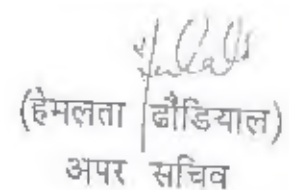 (हेमलता ढौंडियाल)
अपर सचिव